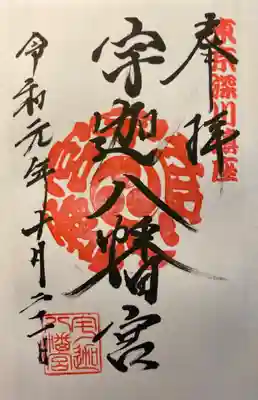 奉拝
東京深川鎮座
宇迦八幡宮
令和元年十月二十一日
宇迦
八幡宮